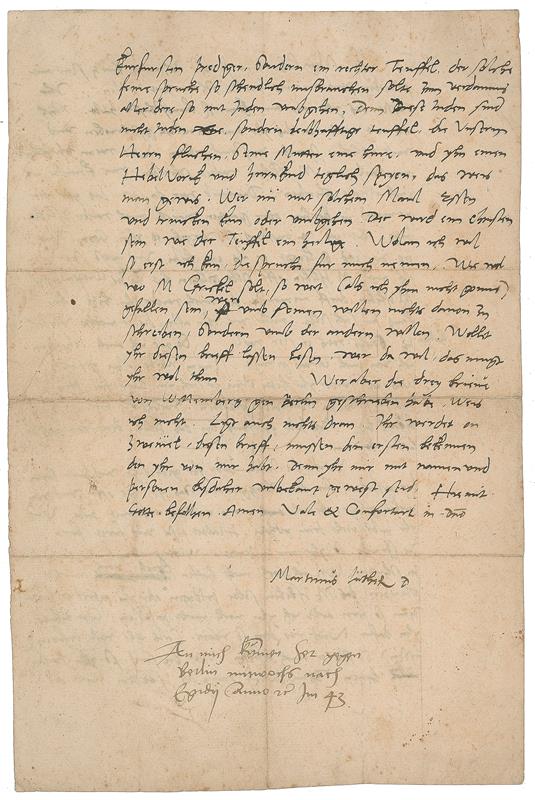 kurfursten prediger, sondern ein rechter Teuffel, der solche
feine spruche so schendlich misbrauchen solte zum verdamnis
aller dere so mit Juden umbgehen, Denn Diese Juden sind
nicht Juden, sondern leibhafftige teuffel, die Unsern
Herrn fluchen, seine Mutter eine hure, und yhn einen
Hebel Vorik und hurnkind teglich speyen, das weis
man gewis. Wer nu mit solchem Maul Essen
und trincken kan oder umbgehen Der wird ein christen
sein, wie der Teuffel ein heilige. Wolan ich wil
so erst ich kan, die spruche fur mich nemen. Wie wol
wo M Grickel solt, so wert (als ich yhm nicht gonne)
gefallen sein, wird und seinen willen nichts davon zu
schreiben, sondern umb der andern willen. Wollet
yhr diesen brieff lassen lesen, wer da wil, das muget
yhr wol thun Wer aber die drey brieve
von Wittemberg gen Berlin geschrieben habe. Weis
ich nicht. Ligt auch nichts dran. Ihr werdet on
zweivel, diesen brieff, mussen den ersten bekennen
den yhr von mir habt. Denn yhr mir mit namen und
personen bisdaher unbekant gewest seid. Hiemit
Gotte befolhen. Amen Vale & Confortare in dno
Martinus Luther D
An mich kumen her gegen
Berlin mitwochs nach
Egidij Anno etc Im 43